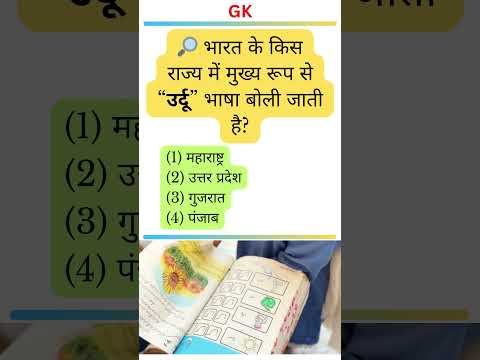 GK
🔎 भारत के किस
राज्य में मुख्य रूप से
“उर्दू” भाषा बोली जाती
है?
(1) महाराष्ट्र
(2) उत्तर प्रदेश
(3) गुजरात
(4) पंजाब